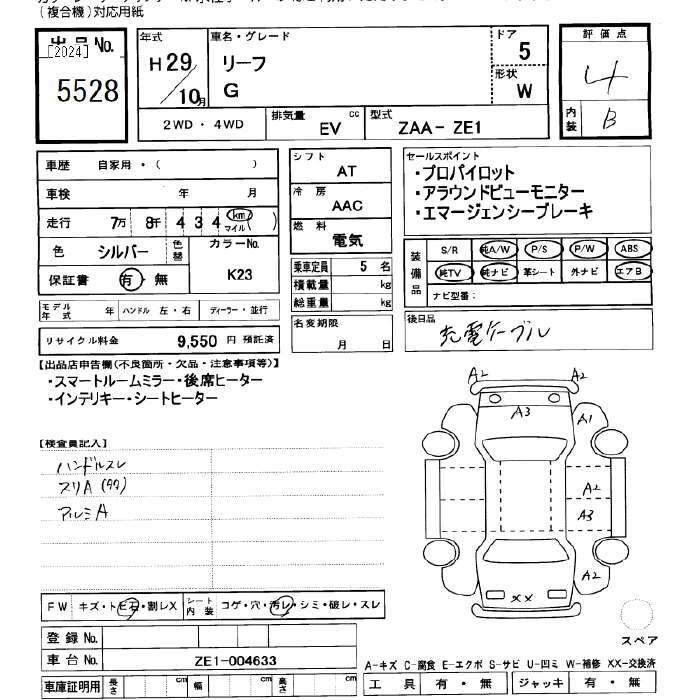 (複合機)対応用紙
出品No.
[2024]
5528
年式
H29/10月
車名・グレード
リーフ
G
ドア
5
形状
W
2WD・4WD
排気量 cc
EV
型式
ZAA-ZE1
評価点
4
内装
B
車歴 自家用・( )
車検 年 月
走行 7万 8千 4 3 4 km マイル ( )
色 シルバー 色替 カラーNo.
保証書 有・無 K23
モデル年式 年 ハンドル 左・右 ディーラー・並行
リサイクル料金 9,550 円 預託済
シフト
AT
冷房
AAC
燃料
電気
乗車定員 5 名
積載量 kg
総重量 kg
名変期限
月 日
セールスポイント
・プロパイロット
・アラウンドビューモニター
・エマージェンシーブレーキ
装備品
S/R 純A/W P/S P/W ABS
純TV 純ナビ 革シート 外ナビ エアB
ナビ型番:
後日品
充電ケーブル
【出品店申告欄(不良箇所・欠品・注意事項等)】
・スマートルームミラー・後席ヒーター
・インテリキー・シートヒーター
【検査員記入】
ハンドルスレ
スリA
アルミA
A2 A2
A3 A1
A2
A3
A2
XX
スペア
FW キズ・トビ石・割レX シート内装 コゲ・穴・汚レ・シミ・破レ・スレ
登録No.
車台No. ZE1-004633
車庫証明用 長さ cm 幅 cm 高さ cm
A-キズ C-腐食 E-エクボ S-サビ U-凹ミ W-補修 XX-交換済
工具 有・無 ジャッキ 有・無